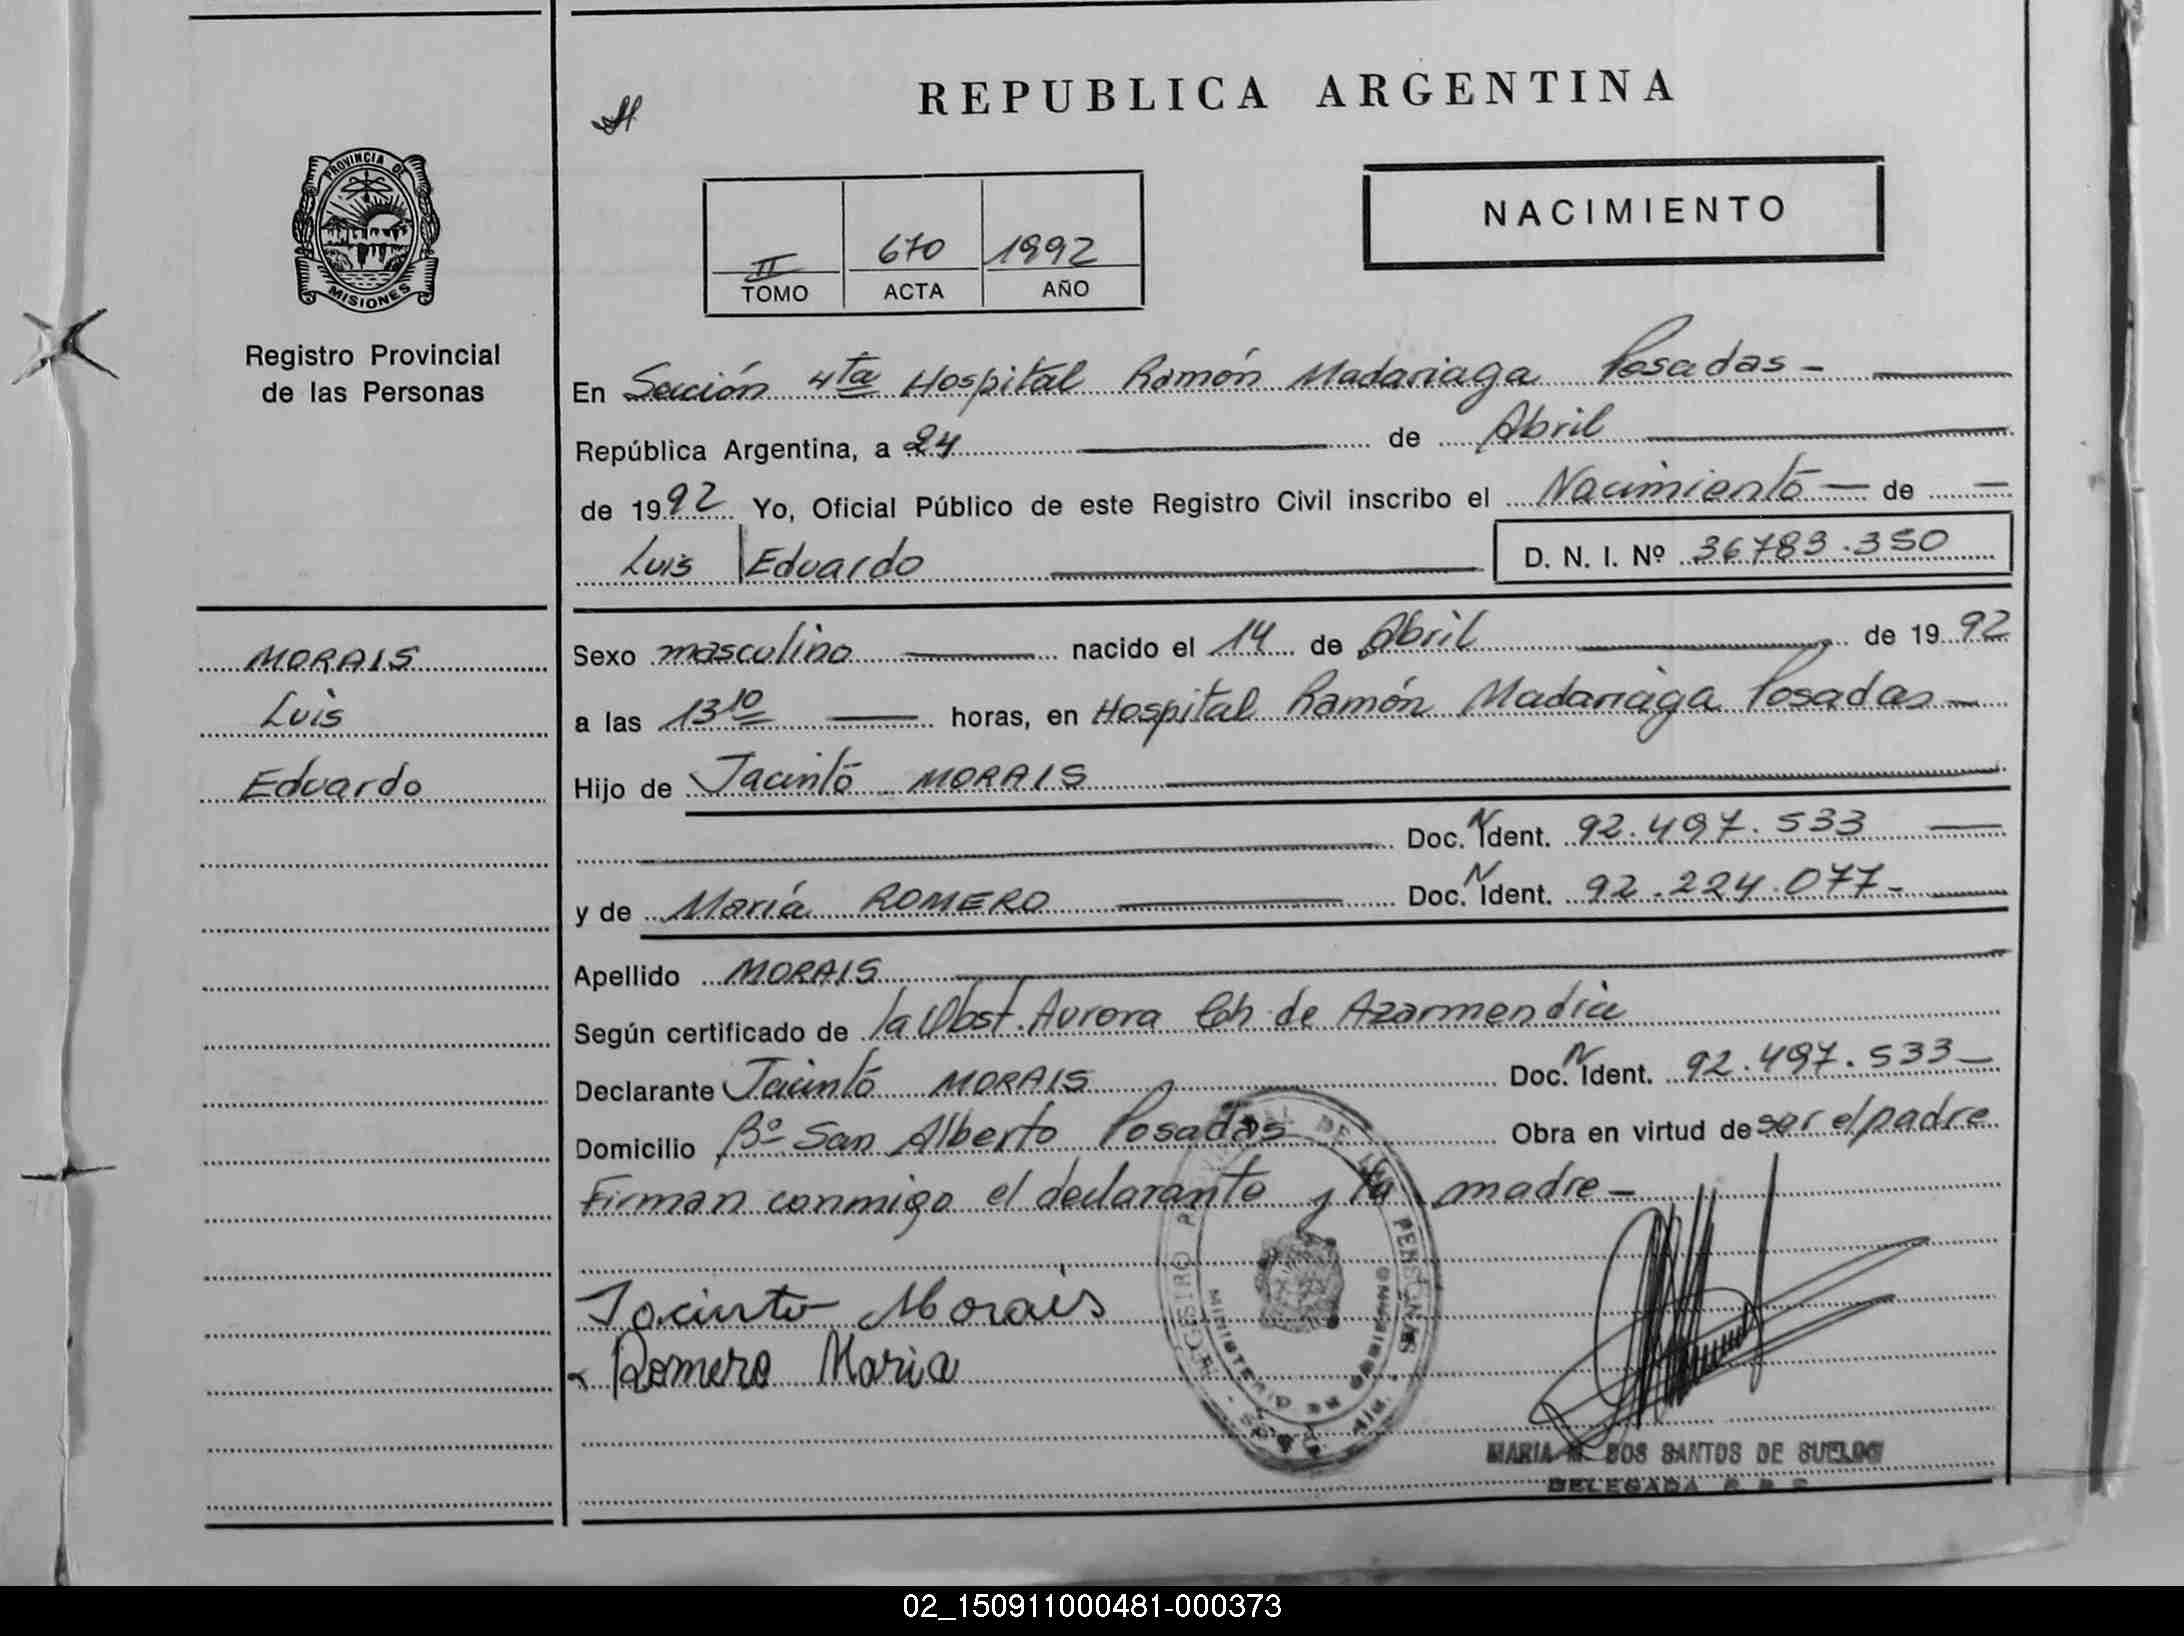 REPUBLICA ARGENTINA
PROVINCIA DE
MISIONES
Registro Provincial
de las Personas
II 670 1992
TOMO ACTA AÑO
NACIMIENTO
En Sección 4ta Hospital Ramón Madariaga Posadas -
República Argentina, a 24 de Abril
de 1992 Yo, Oficial Público de este Registro Civil inscribo el Nacimiento de
Luis Eduardo D. N. I. Nº 36783.350
MORAIS
Luis
Eduardo
Sexo masculino nacido el 14 de Abril de 1992
a las 13 10 horas, en Hospital Ramón Madariaga Posadas -
Hijo de Jacinto MORAIS
Doc. N Ident. 92.497.533
y de María ROMERO Doc. N Ident. 92.224.077-
Apellido MORAIS
Según certificado de la Obst. Aurora Ch de Azarmendia
Declarante Jacinto MORAIS Doc. N Ident. 92.497.533-
Domicilio Bº San Alberto Posadas Obra en virtud de ser el padre
Firman conmigo el declarante y la madre -
Jacinto Morais
Romero Maria
MINISTERIO DE GOBIERNO
MARIA M. DOS SANTOS DE SUELDO
DELEGADA R. P. P.
02_150911000481-000373